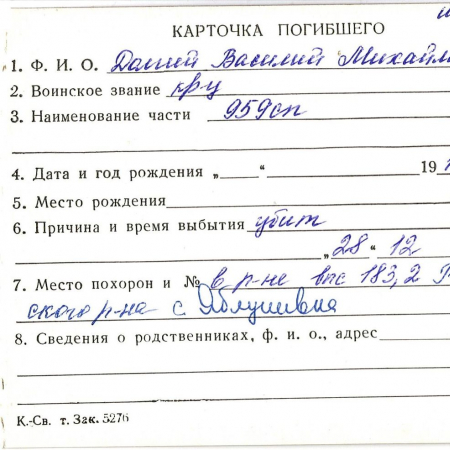 КАРТОЧКА ПОГИБШЕГО
1. Ф. И. О. Долий Василий Михайл
2. Воинское звание кр-ц
3. Наименование части 959сп
4. Дата и год рождения „ “ 19
5. Место рождения
6. Причина и время выбытия убит
„28“ 12
7. Место похорон и № в р-не выс 183,2
ского р-на с. Яблушевка
8. Сведения о родственниках, ф. и. о., адрес
К.-Св. т. Зак. 5276